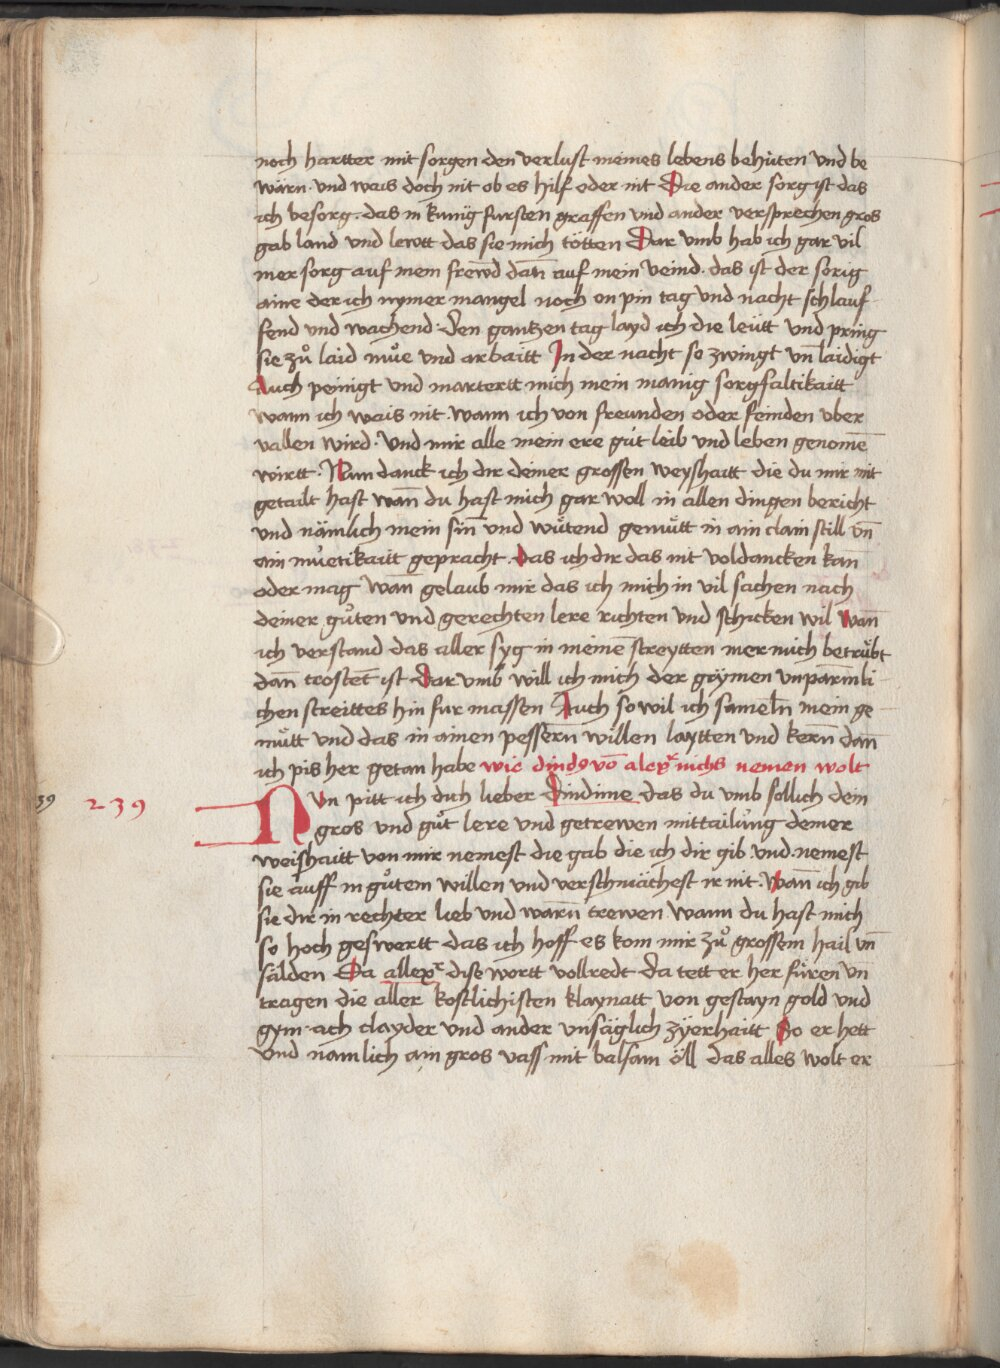 noch hartter mit sorgen den verlust meines lebens behüten vnd be
wärn · vnd wais doch nit ob es hilf oder nit Die ander sorg ist das
ich besorg · das in kunig fursten graffen vnd ander versprechen gros
gab land vnd lewtt das sie mich tötten Dar vmb hab ich gar vil
mer sorg auf mein frewd dañ auf mein veind · das ist der sorig
aine der ich nymer mangel noch on pin tag vnd nacht schlauf
fend vnd wachend · den gantzen tag layd ich die leütt vnd pring
sie zů laid můe vnd arbaitt In der nacht so zwingt vn̄ laidigt
Auch peinigt vnd martertt mich mein manig sorgfaltikaitt
wann ich wais nit · wann ich von freunden oder feinden vber
vallen wird · vnd mir alle mein ere gůt leib vnd leben genomē
wirtt · Nun danck ich dir deiner grossen weyshaitt die du mir mit
getailt hast wañ du hast mich gar woll in allen dingen bericht
vnd nämlich mein siñ vnd wütend gemütt in ain clain still vn̄
ain můetikaitt gepracht · Das ich dir das nit voldancken kan̄
oder mag wañ gelaub mir das ich mich in vil sachen nach
deiner gůten vnd gerechten lere richten vnd schicken wil wañ
ich verstand das aller syg in meinē streytten mer mich betrübt
dañ trostet̄ ist Dar vmb will ich mich der grymen vnparm̄li
chen streittes hin fur massen Auch so wil ich sameln̄ mein ge
mütt vnd das in ainen pessern̄ willen laytten vnd kern̄ dañ
ich pis her getan habe wie dind9 võ alexr nichs nemen wolt
39 239 Nvn pitt ich dich lieber Dindime das du vmb sollich dein
gros vnd gůt lere vnd getrewen mittailung deiner
weishaitt von mir nemest die gab die ich dir gib · vnd · nemest
sie auff in gůtem willen vnd verschmächest ir nit · Wañ ich gib
sie dir in rechter lieb vnd warn̄ trewen wann du hast mich
so hoch geswertt das ich hoff es kom mir zů grossem hail vn̄
sälden Da allexr dise wortt vollredt da tett er her füren vn̄
tragen die aller kostlichisten klaynatt von gestayn gold vnd
gym ach clayder vnd ander vnsäglich zÿerhaitt So er hett
vnd nämlich ain gros vass mit balsam öll das alles wolt er